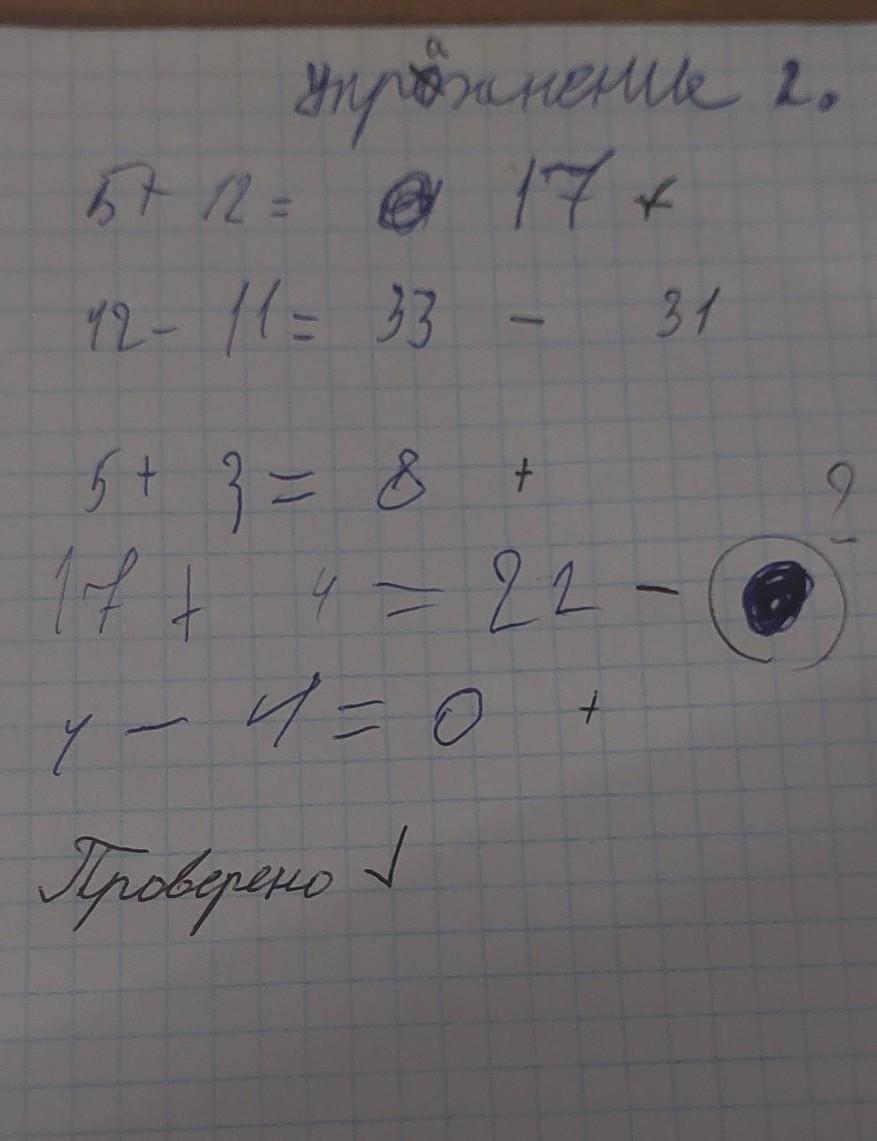 Упражнение 2.
5+ 12 = 17 +
12 - 11 = 33 - 31
5 + 3 = 8 +
17 + 4 = 22 - ?
4 - 4 = 0 +
Проверено √